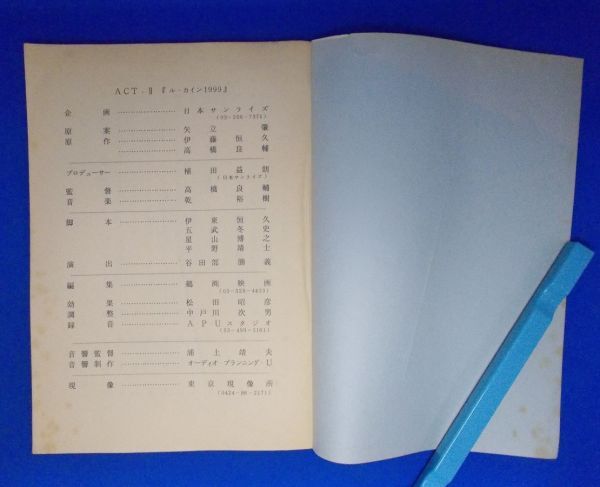 ACT-Ⅱ『ル・カイン1999』
企画………………日本サンライズ
原案………………矢立肇
原作………………伊藤恒久
………………高橋良輔
プロデューサー………………植田益朗
(日本サンライズ)
監督………………高橋良輔
音楽………………乾裕樹
脚本………………伊東恒久
五武冬史
星山博之
平野靖士
演出………………谷田部勝義
編集………………鶴渕映画
効果………………松田昭彦
調整………………中戸川次男
録音………………APUスタジオ
音響監督………………浦上靖夫
音響制作………………オーディオ・プランニング・U
現像………………東京現像所